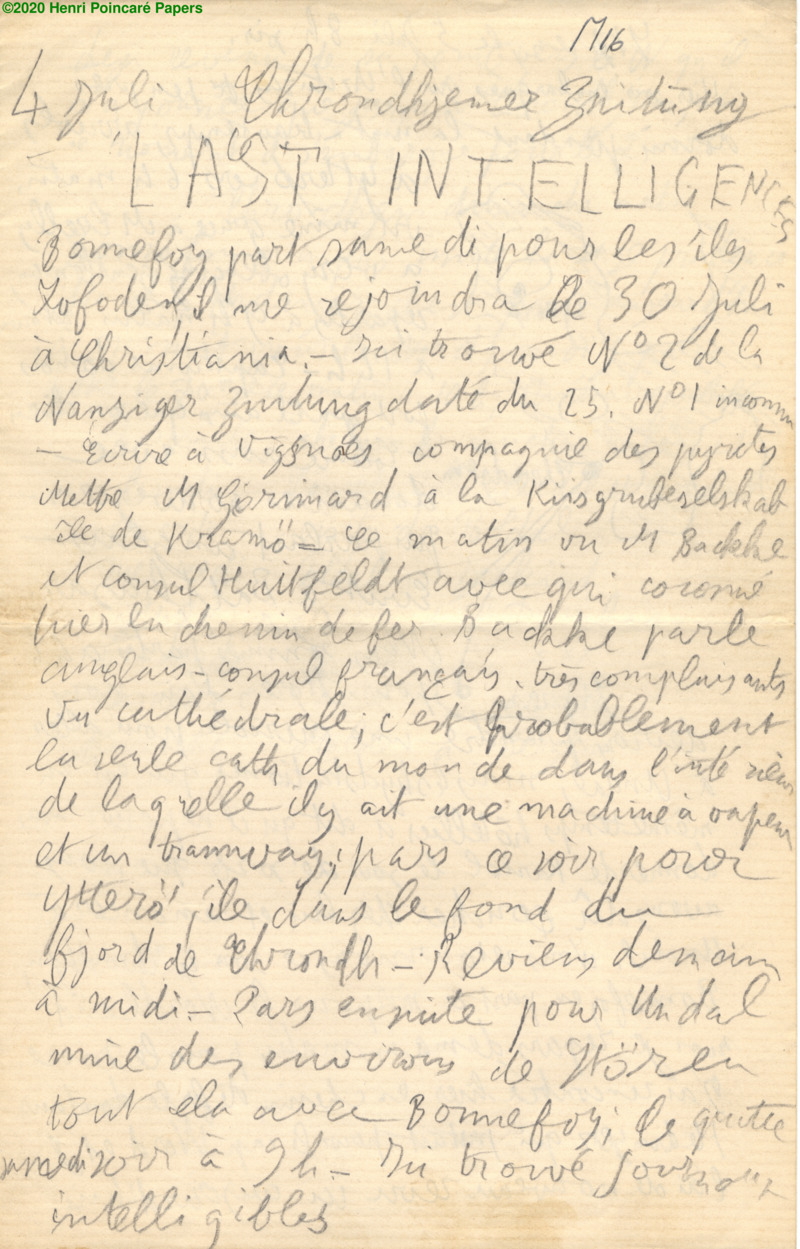 ©2020 Henri Poincaré Papers
M16
4 Juli Throndhjemer Zeitung
– LAST INTELLIGENCES
Bonnefoy part samedi pour les îles
Lofoden, il me rejoindra le 30 Juli
à Christiania. – Ai trouvé N° 2 de la
Nanziger Zeitung daté du 25. N° 1 inconnu
– Ecrire à Vigsnoes compagnie des pyrites
Mettre M Grimard à la Kiisgrubeselskab
Ile de Kramö – Ce matin vu M Backke
et consul Huitfeldt avec qui causé
hier la chemin de fer. Backke parle
anglais – consul français. très complaisants
Vu cathédrale; c'est probablement
la seule cath du monde dans l'intérieur
de laqelle il y ait une machine à vapeur
et un tramway; pars ce soir pour
Ytterö, île dans le fond du
fjord de Throndh – Reviens demain
à midi – Pars ensuite pour Undal
mine des environs de Stören
tout ela avec Bonnefoy; le quitte
samedi soir à 9h – Ai trouvé journaux
intelligibles